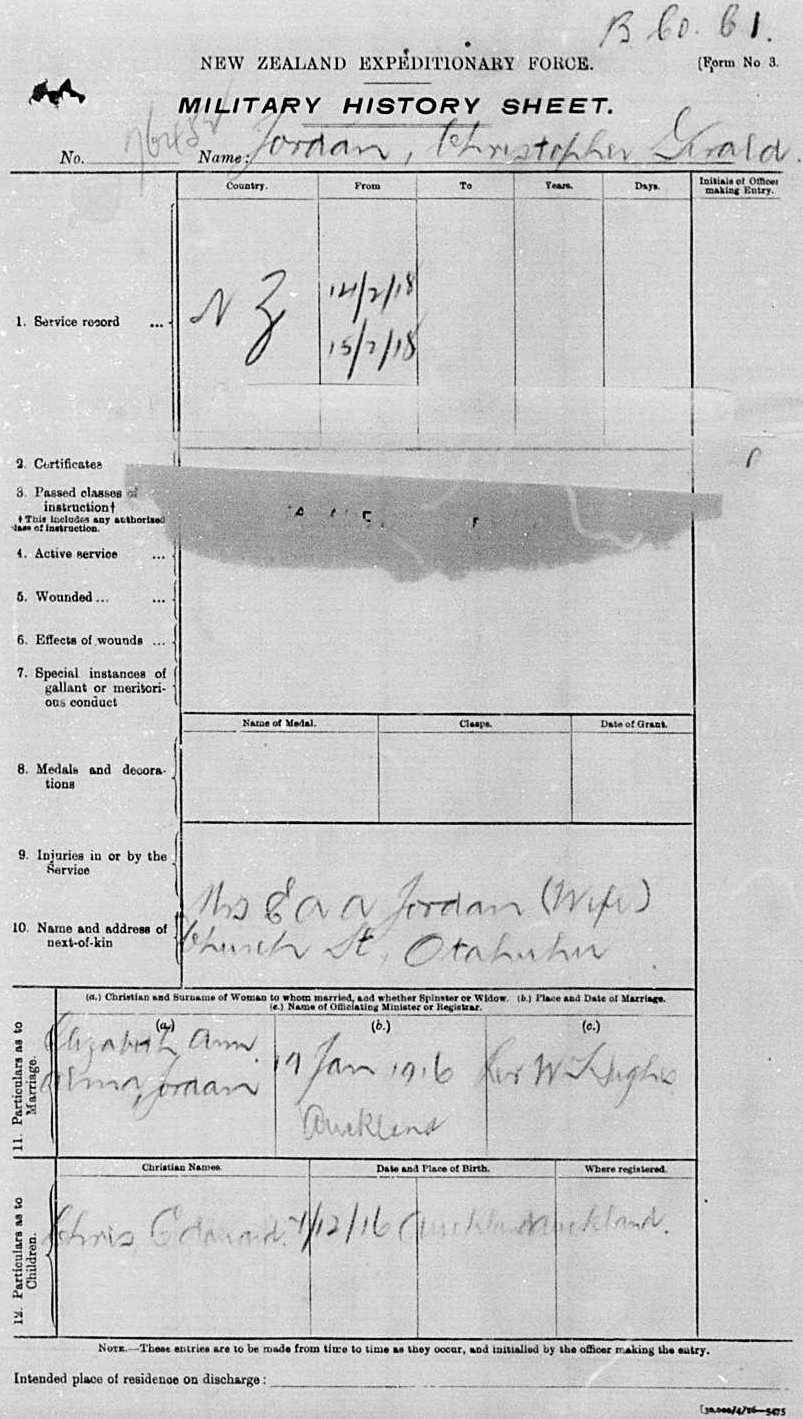 B Co. 61.
NEW ZEALAND EXPEDITIONARY FORCE.
[Form No 3.
MILITARY HISTORY SHEET.
No. Name: Jordan, Christopher Gerald.
Country. From To Years. Days. Initials of Officer making Entry.
1. Service record ... NZ 14/2/18
15/7/18
2. Certificates
3. Passed classes of
instruction†
† This includes any authorised
class of instruction.
4. Active service ...
5. Wounded ... ...
6. Effects of wounds ...
7. Special instances of
gallant or meritori-
ous conduct
Name of Medal. Clasps. Date of Grant.
8. Medals and decora-
tions
9. Injuries in or by the
Service
Mrs E A A Jordan (Wife)
10. Name and address of
next-of-kin
Church St, Otahuhu
11. Particulars as to
Marriage.
(a.) Christian and Surname of Woman to whom married, and whether Spinster or Widow. (b.) Place and Date of Marriage.
(c.) Name of Officiating Minister or Registrar.
(a.) (b.) (c.)
Elizabeth Ann Jan 1916 Rev W
Jordan Auckland
12. Particulars as to
Children.
Christian Names. Date and Place of Birth. Where registered.
Chris Edward /12/16 Auckland Auckland.
NOTE.—These entries are to be made from time to time as they occur, and initialled by the officer making the entry.
Intended place of residence on discharge:
[30,000/4/16—5475